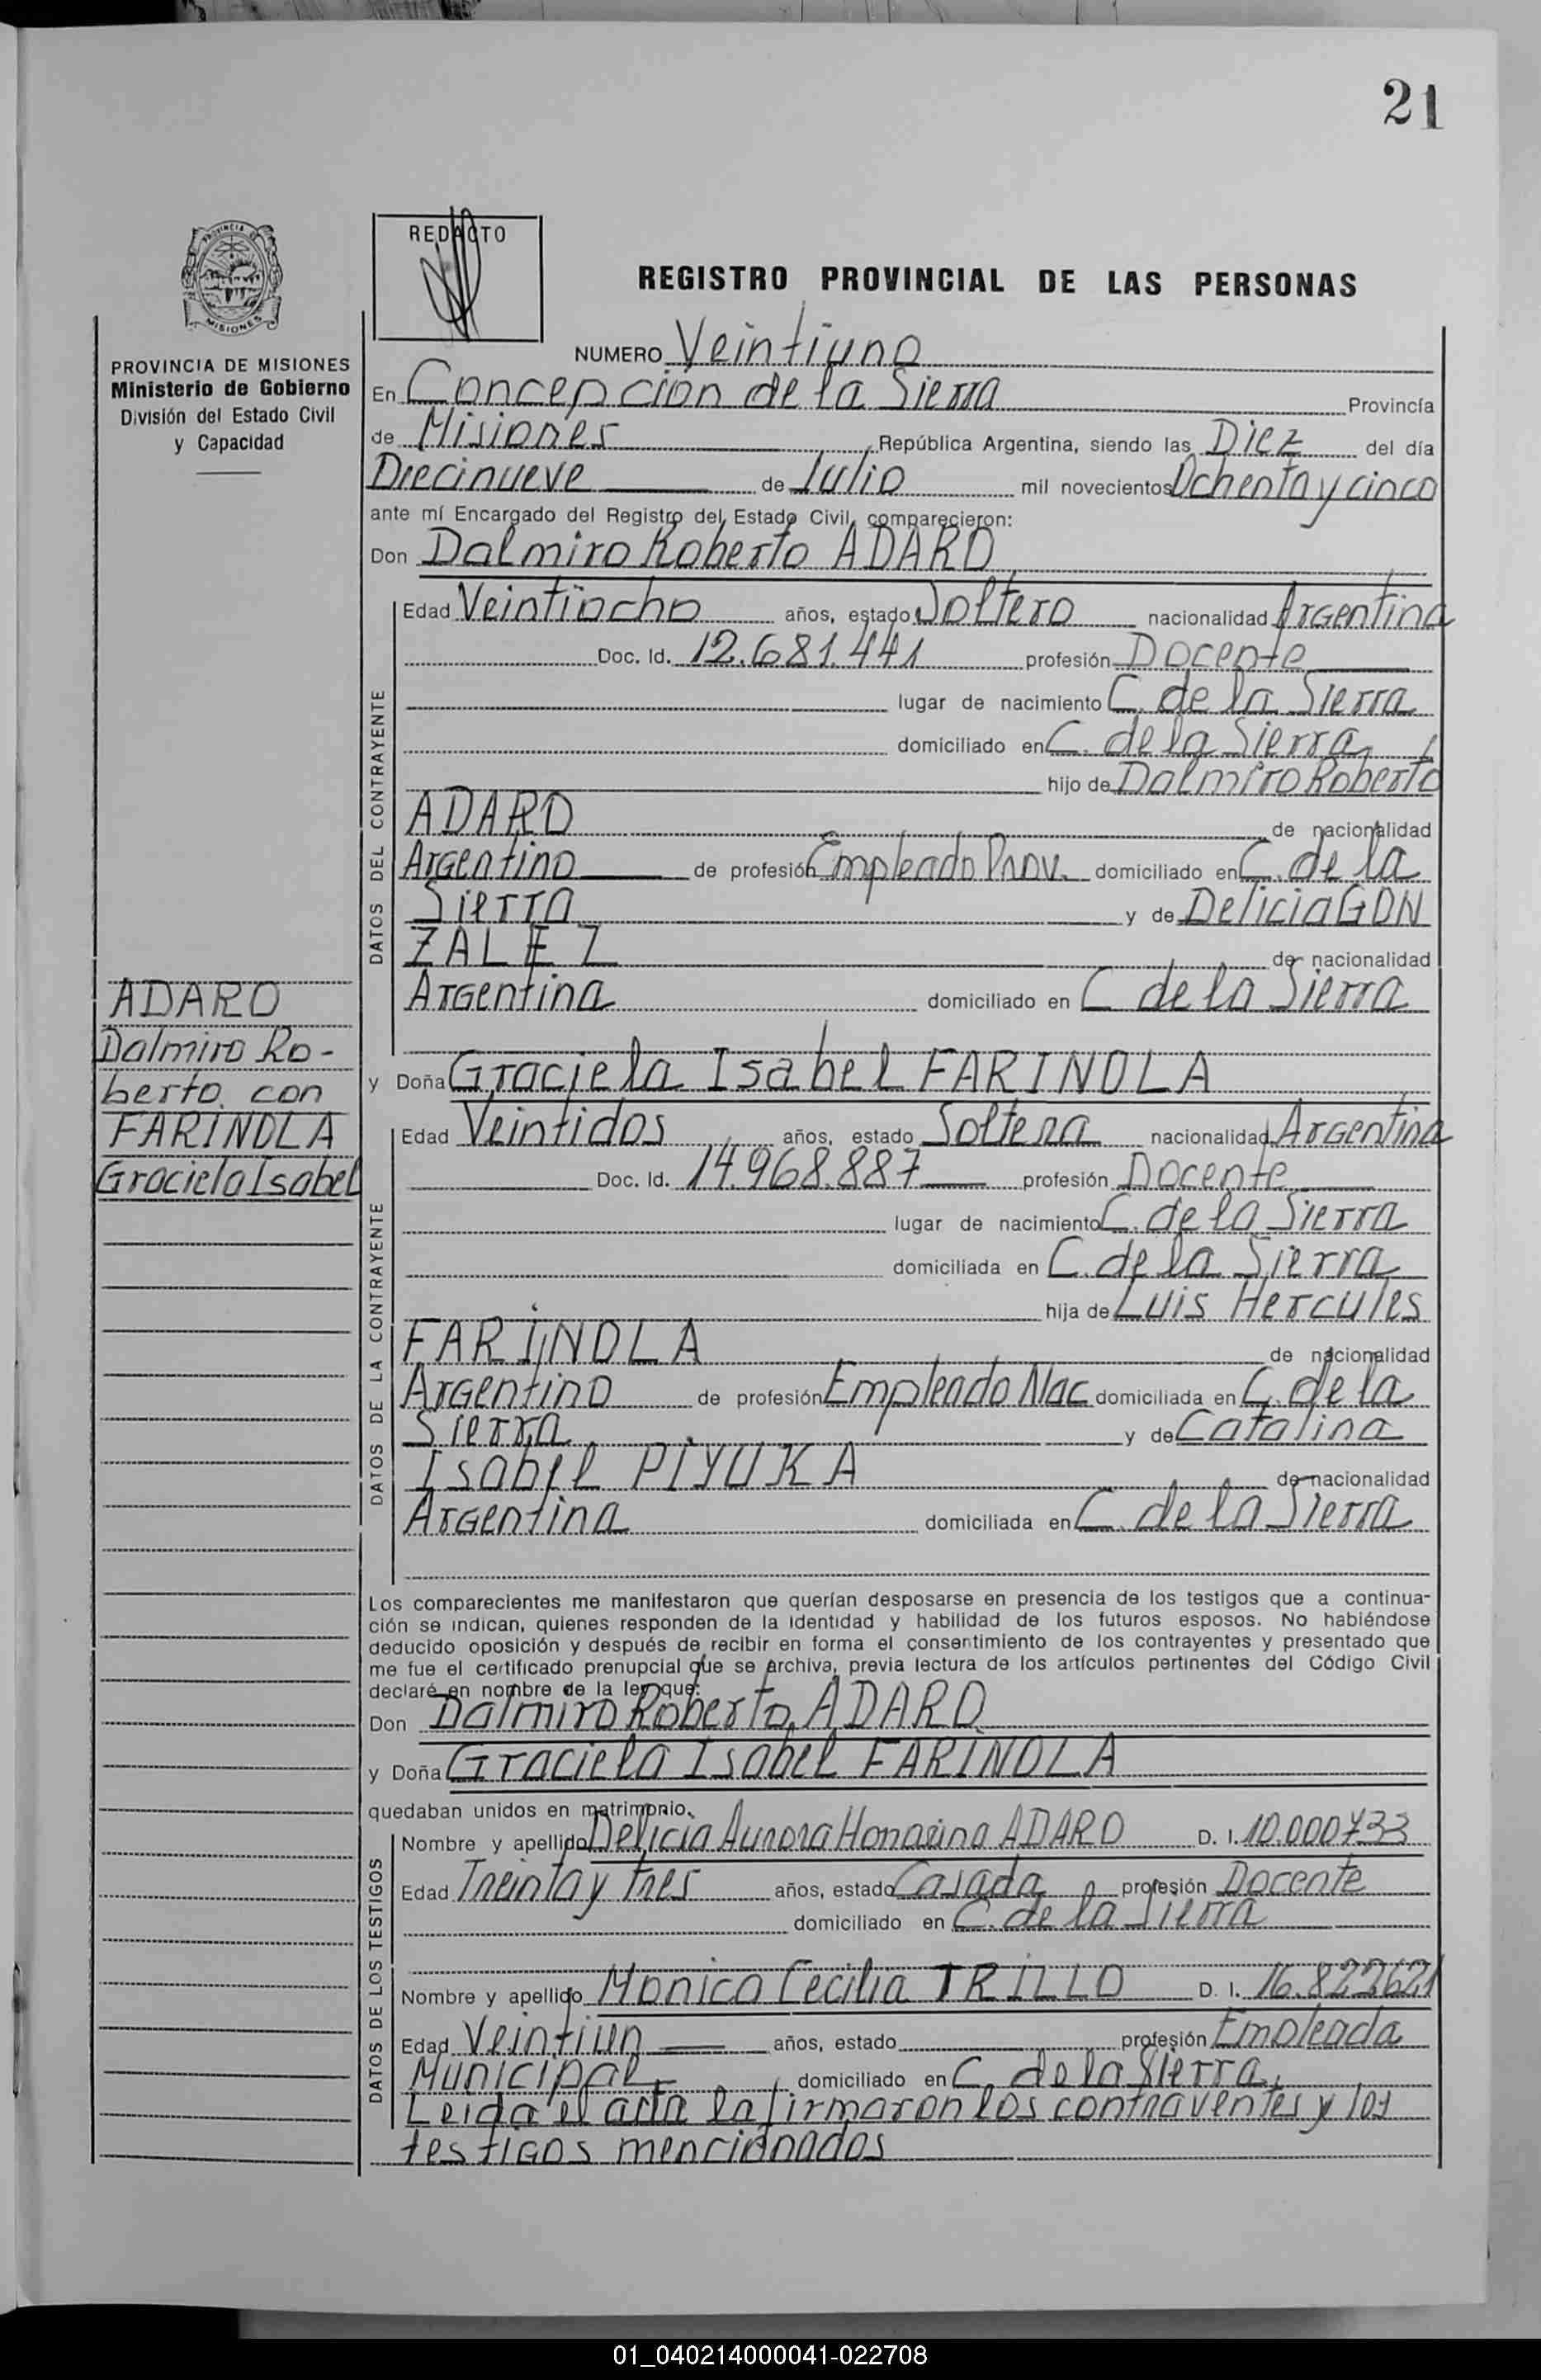 21
PROVINCIA DE
MISIONES
PROVINCIA DE MISIONES
Ministerio de Gobierno
División del Estado Civil
y Capacidad
REDACTO
REGISTRO PROVINCIAL DE LAS PERSONAS
NUMERO Veintiuno
En Concepción de la Sierra Provincia
de Misiones República Argentina, siendo las Diez del día
Diecinueve de Julio mil novecientos Ochenta y cinco
ante mí Encargado del Registro del Estado Civil, comparecieron:
Don Dalmiro Roberto ADARO
DATOS DEL CONTRAYENTE
Edad Veintiocho años, estado Soltero nacionalidad Argentina
Doc. Id. 12.681.441 profesión Docente
lugar de nacimiento C. de la Sierra
domiciliado en C. de la Sierra
hijo de Dalmiro Roberto
ADARO de nacionalidad
Argentino de profesión Empleado Prov. domiciliado en C. de la
Sierra y de Delicia GON
ZALEZ de nacionalidad
Argentina domiciliado en C de la Sierra
y Doña Graciela Isabel FARINOLA
DATOS DE LA CONTRAYENTE
Edad Veintidos años, estado Soltera nacionalidad Argentina
Doc. Id. 14.968.887 profesión Docente
lugar de nacimiento C. de la Sierra
domiciliada en C. de la Sierra
hija de Luis Hercules
FARINOLA de nacionalidad
Argentino de profesión Empleado Nac domiciliada en C. de la
Sierra y de Catalina
Isabel PIYUKA de nacionalidad
Argentina domiciliada en C. de la Sierra
ADARO
Dalmiro Ro-
berto con
FARINOLA
Graciela Isabel
Los comparecientes me manifestaron que querían desposarse en presencia de los testigos que a continua-
ción se indican, quienes responden de la identidad y habilidad de los futuros esposos. No habiéndose
deducido oposición y después de recibir en forma el consentimiento de los contrayentes y presentado que
me fue el certificado prenupcial que se archiva, previa lectura de los artículos pertinentes del Código Civil
declaré en nombre de la ley que:
Don Dalmiro Roberto ADARO
y Doña Graciela Isabel FARINOLA
quedaban unidos en matrimonio.
DATOS DE LOS TESTIGOS
Nombre y apellido Delicia Aurora ADARO D. I. 10.000733
Edad Treinta y tres años, estado Casada profesión Docente
domiciliado en C. de la Sierra
Nombre y apellido Monica Cecilia TRILLO D. I. 16.822621
Edad Veintiun años, estado profesión Empleada
Municipal domiciliado en C. de la Sierra
Leida el acta la firmaron los contraventes y los
testigos mencionados
01_040214000041-022708